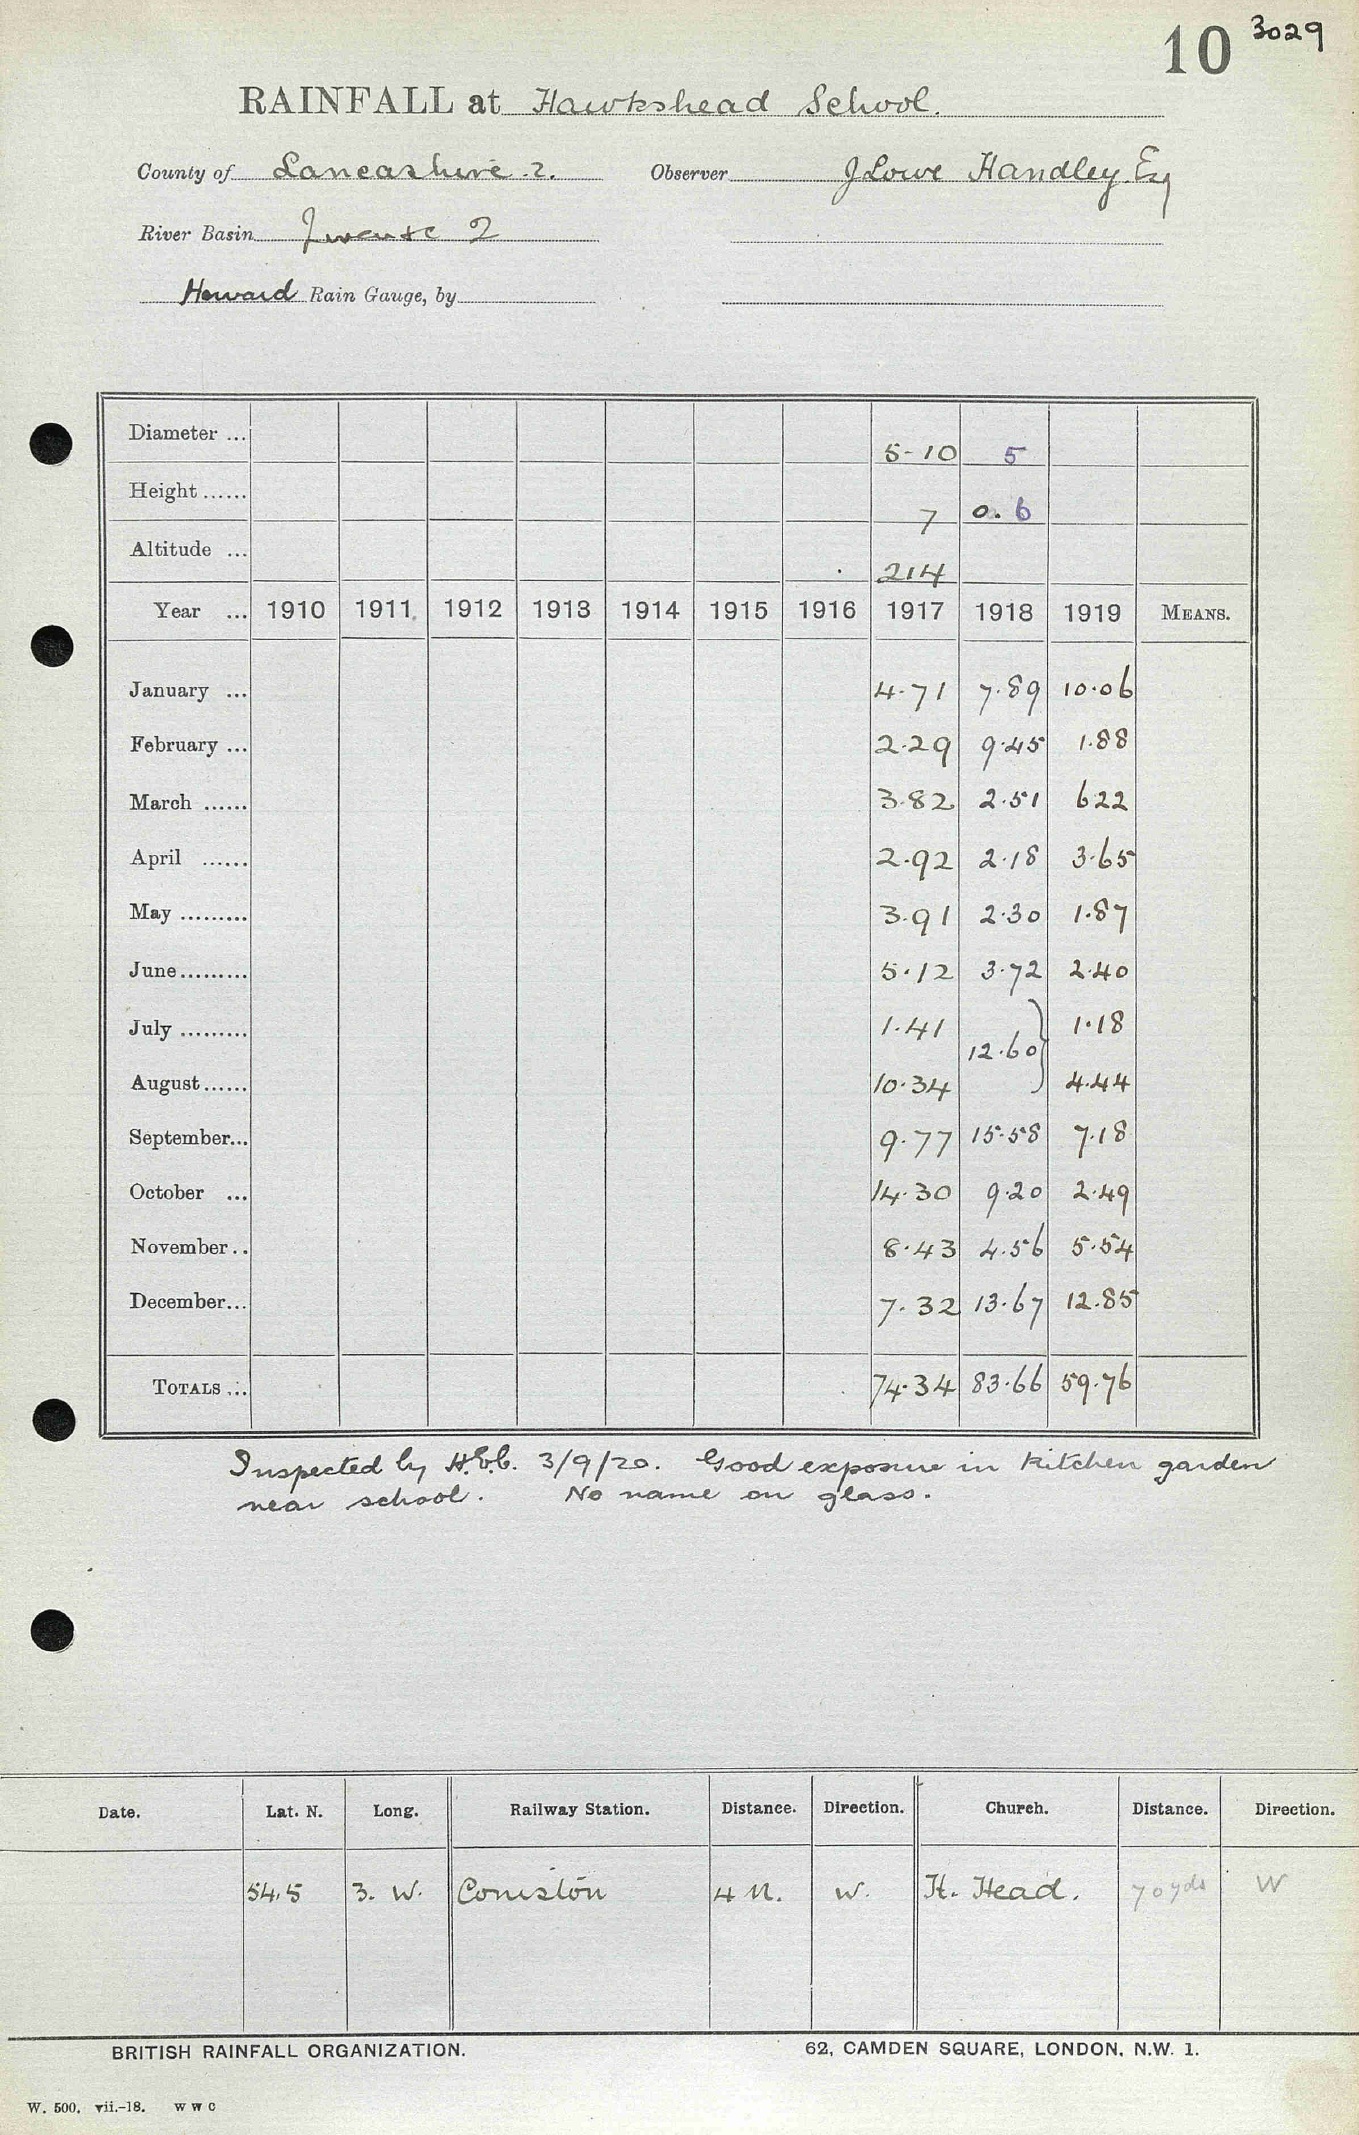 10 3029
RAINFALL at Hawkshead School.
County of Lancashire .2. Observer J Lowe Handley. Esq
River Basin 2
Howard Rain Gauge, by
Diameter ... 5-10 5
Height ...... 7 0.6
Altitude ... 214
Year ... 1910 1911 1912 1913 1914 1915 1916 1917 1918 1919 MEANS.
January ... 4.71 7.89 10.06
February ... 2.29 9.45 1.88
March ...... 3.82 2.51 622
April ...... 2.92 2.18 3.65
May ......... 3.91 2.30 1.87
June ......... 5.12 3.72 2.40
July ......... 1.41 1.18
12.60}
August ...... 10.34 4.44
September... 9.77 15.58 7.18
October ... 14.30 9.20 2.49
November .. 8.43 4.56 5.54
December... 7.32 13.67 12.85
TOTALS ... 74.34 83.66 59.76
Inspected by 3/9/20. Good exposure in kitchen garden
near school. No name on glass.
Date. Lat. N. Long. Railway Station. Distance. Direction. Church. Distance. Direction.
54.5 3. W. Coniston 4 M. W. H. Head. 70 yds W
BRITISH RAINFALL ORGANIZATION. 62, CAMDEN SQUARE, LONDON, N.W. 1.
W. 500. vii.-18. W W C